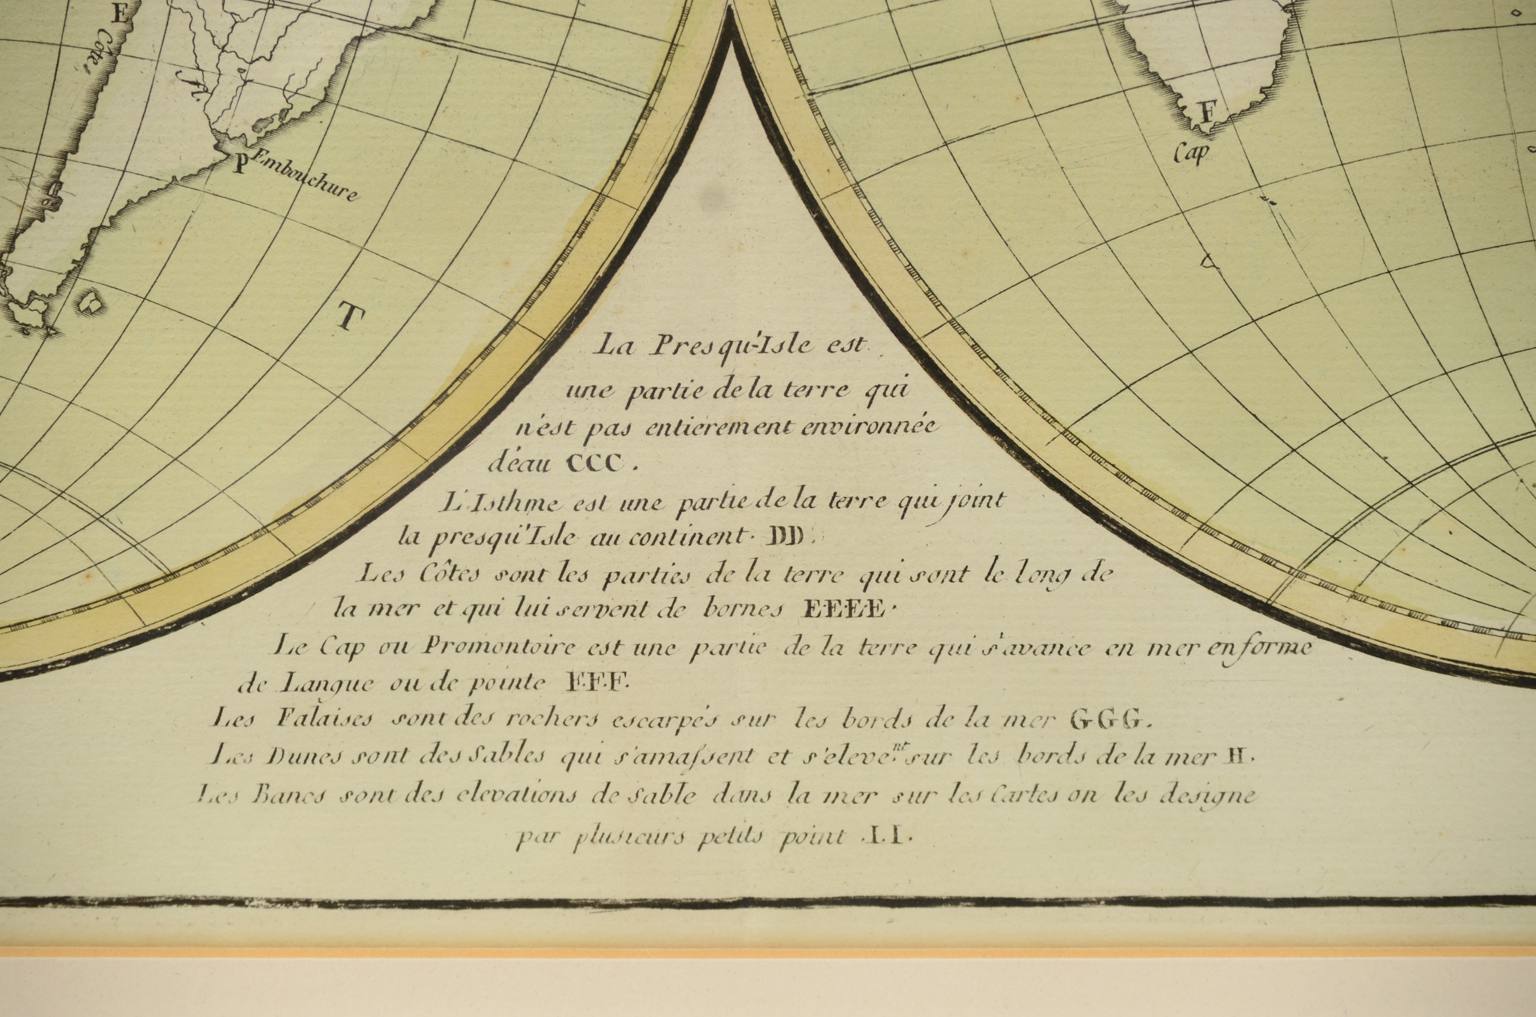 E
Côtes
fl.
P
Embouchure
T
F
Cap
La Presqu'Isle est
une partie de la terre qui
n'est pas entierement environnée
d'eau CCC.
L'Isthme est une partie de la terre qui joint
la presqu'Isle au continent. DD.
Les Côtes sont les parties de la terre qui sont le long de
la mer et qui lui servent de bornes E.E.E.E.
Le Cap ou Promontoire est une partie de la terre qui s'avance en mer en forme
de Langue ou de pointe F.F.F.
Les Falaises sont des rochers escarpés sur les bords de la mer G.G.G.
Les Dunes sont des Sables qui s'amaſsent et s'eleve.nt sur les bords de la mer H.
Les Bancs sont des elevations de Sable dans la mer sur les Cartes on les designe
par plusieurs petits point .I.I.